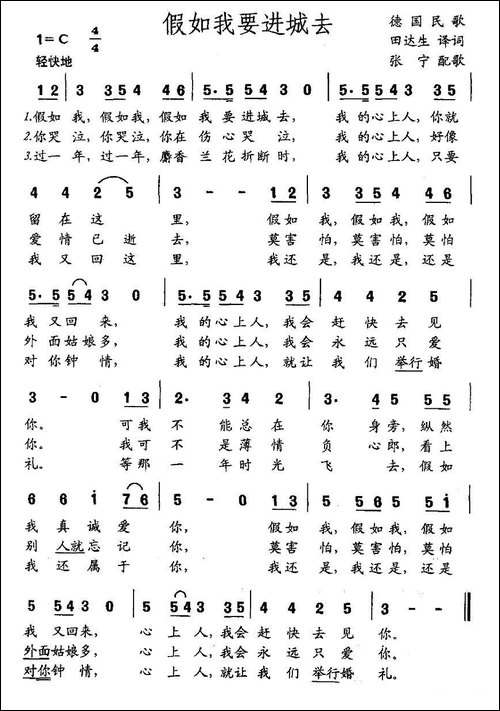 假如我要进城去
1=C 4/4
德国民歌
田达生 译词
轻快地
张宁配歌
1 2 3 3 5 4 5 4 4 6 5· 5 5 5 4 3 0 5· 5 5 4 3 3 5
1.假如我，假如我，假如我要进城去，我的心上人，你就
2.你哭泣，你哭泣，你在伤心哭泣，我的心上人，好像
3.过一年，过一年，麝香兰花折断时，我的心上人，只要
4 4 2 5 3 - - 1 2 3 3 5 4 4 6
留在这里，假如我，假如我，假如
爱情已逝去，莫害怕，莫害怕，莫怕
我又回这里，我还是，我还是，还是
5· 5 5 4 3 0 5· 5 5 4 3 3 5 4 4 2 5
我又回来，我的心上人，我会赶快去见
外面姑娘多，我的心上人，我会永远只爱
对你钟情，我的心上人，就让我们举行婚
3 - 0 1 3 2· 3 4 2 3· 4 5 5
你。可我不能总在你身旁，纵然
你。我可不是薄情负心郎，看上
礼。等那一年时光飞去，假如
6 6 i 7 6 5 - 0 1 3 5 5 6 5 5 5 i
我真诚爱你，假如我，假如我，假如
别人就忘记你，莫害怕，莫害怕，莫怕
我还属于你，我还是，我还是，还是
5 5 4 3 0 5 5 4 3 3 5 4 4 2 5 3 - 0
我又回来，心上人，我会赶快去见你。
外面姑娘多，心上人，我会永远只爱你。
对你钟情，心上人，就让我们举行婚礼。